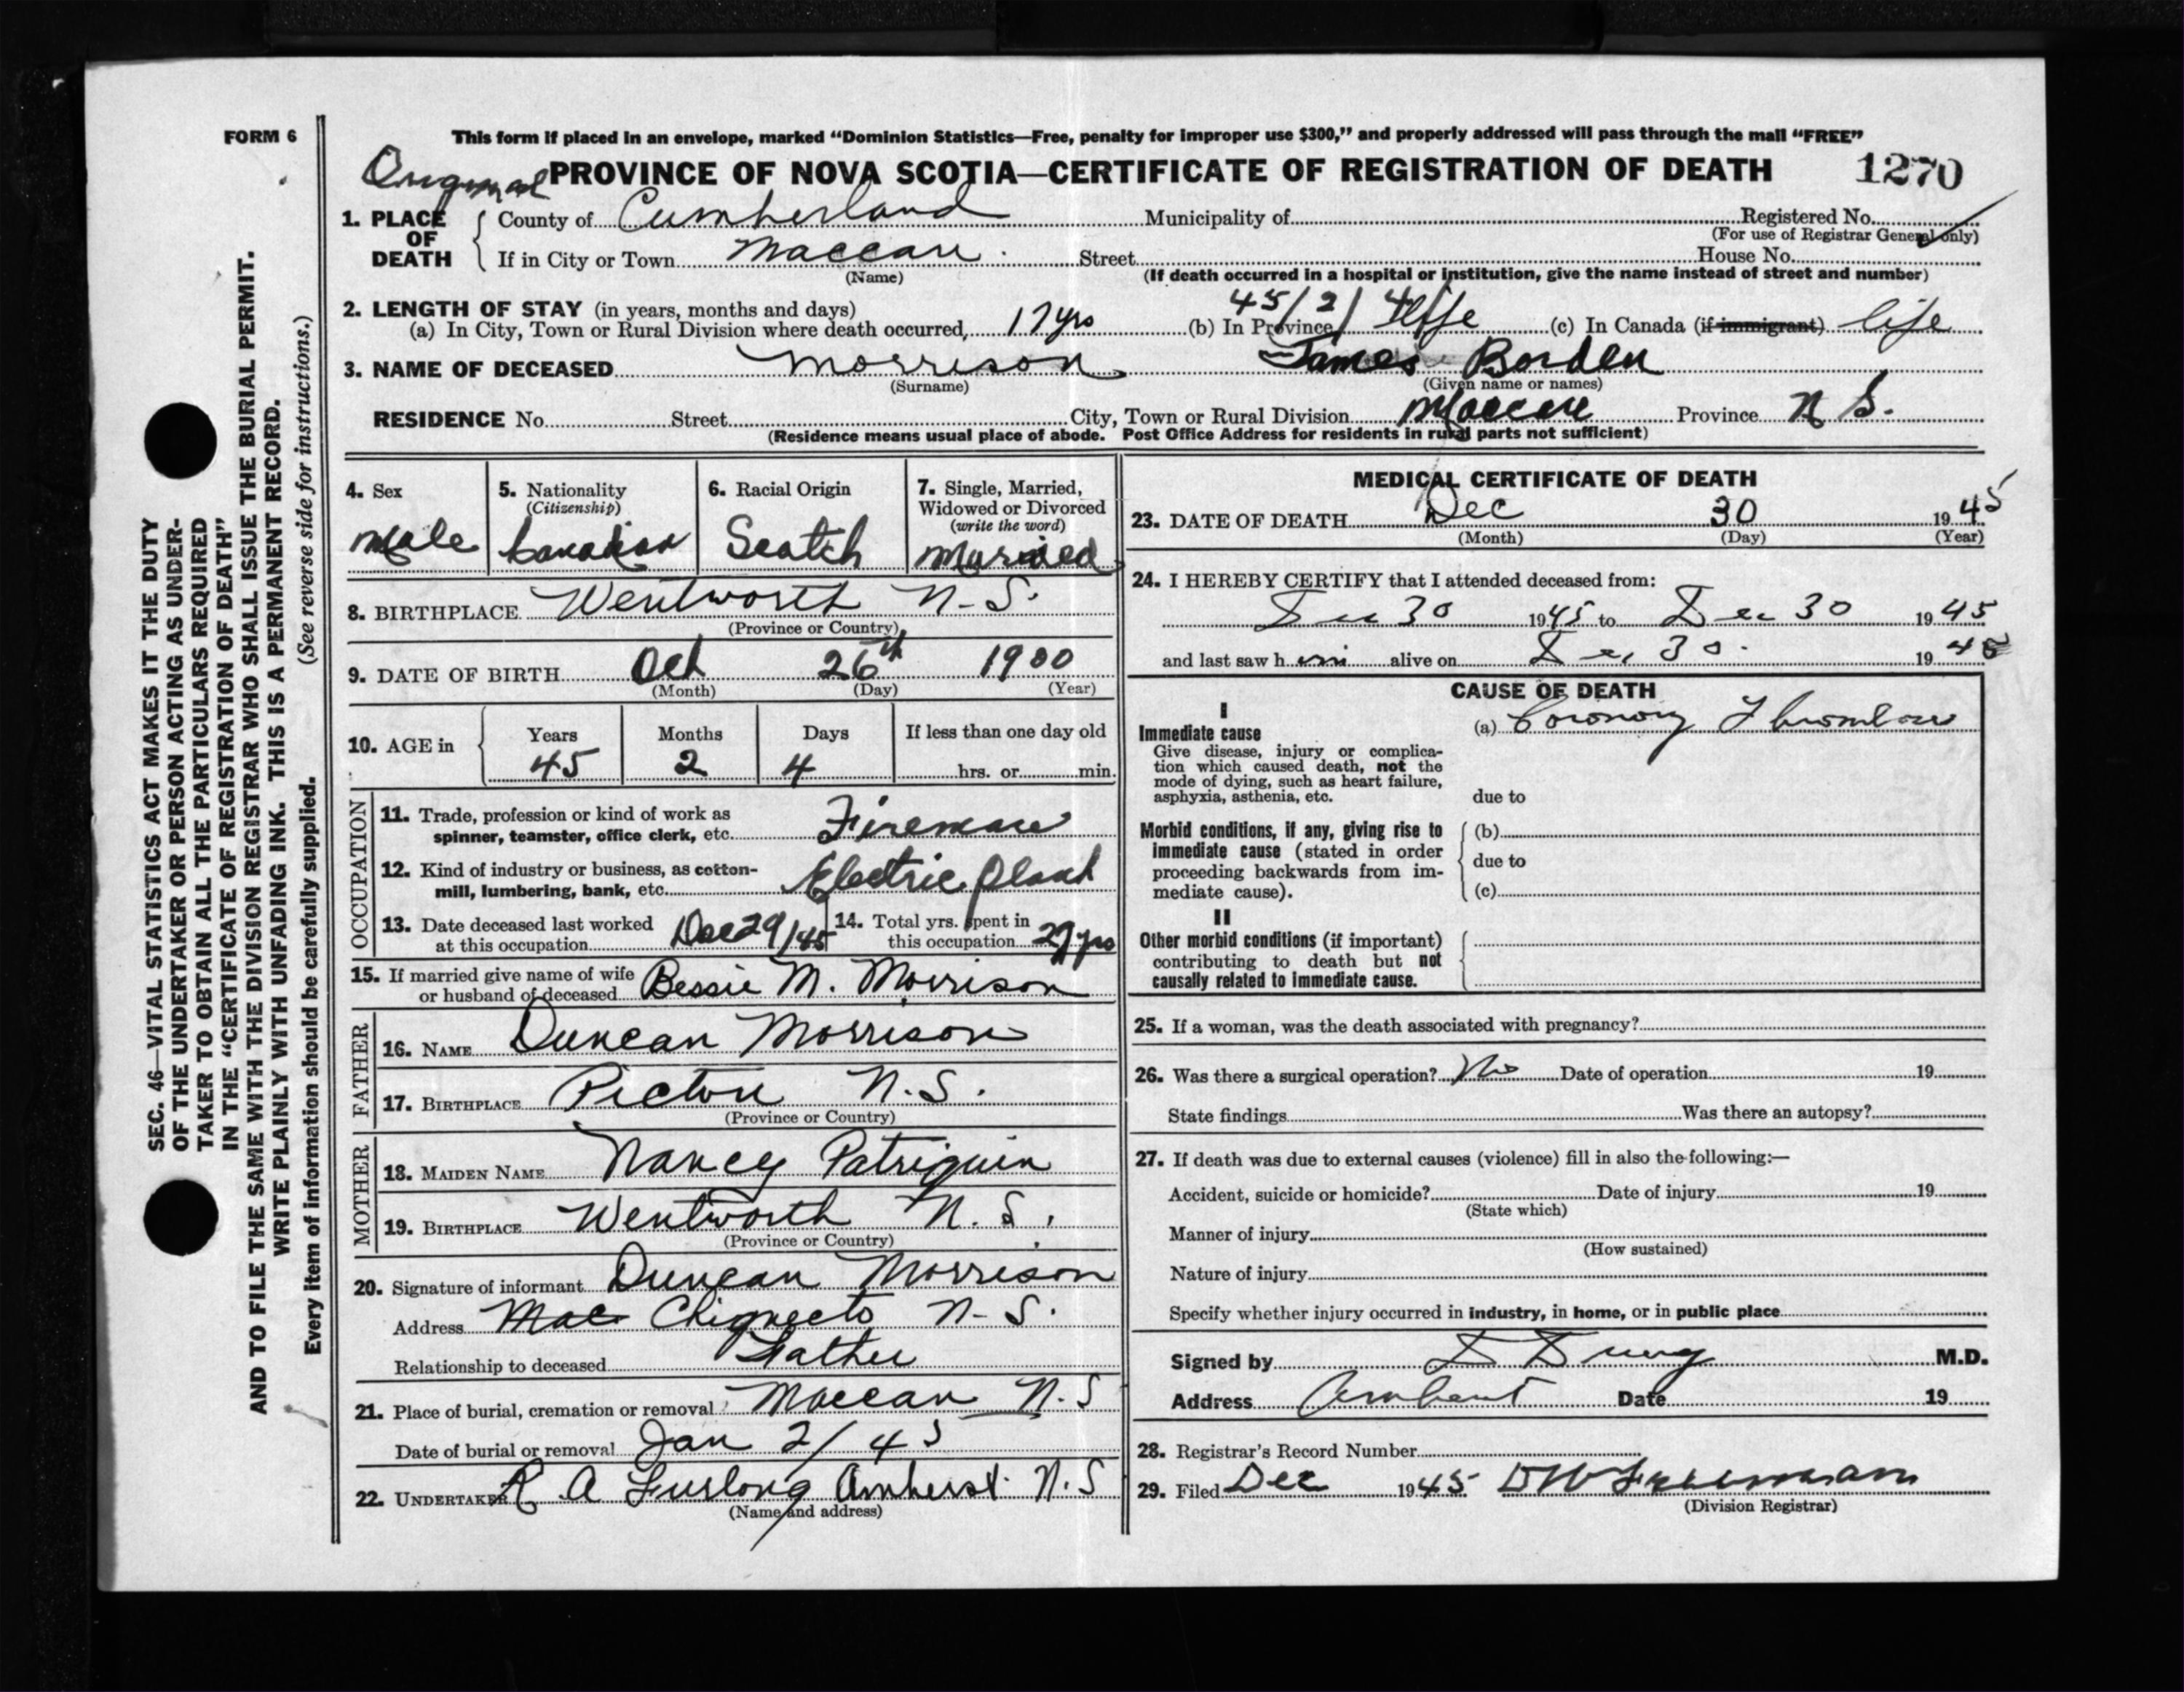 FORM 6
This form if placed in an envelope, marked "Dominion Statistics—Free, penalty for improper use $300," and properly addressed will pass through the mail "FREE"
Original PROVINCE OF NOVA SCOTIA—CERTIFICATE OF REGISTRATION OF DEATH 1270
1. PLACE OF DEATH County of Cumberland Municipality of Registered No.
(For use of Registrar General only)
If in City or Town Maccan Street House No.
(Name) (If death occurred in a hospital or institution, give the name instead of street and number)
2. LENGTH OF STAY (in years, months and days) 45/2/4
(a) In City, Town or Rural Division where death occurred, 17 yrs (b) In Province life (c) In Canada (if immigrant) life
3. NAME OF DECEASED Morrison James Borden
(Surname) (Given name or names)
RESIDENCE No. Street City, Town or Rural Division Maccan Province N S.
(Residence means usual place of abode. Post Office Address for residents in rural parts not sufficient)
SEC. 46—VITAL STATISTICS ACT MAKES IT THE DUTY
OF THE UNDERTAKER OR PERSON ACTING AS UNDER-
TAKER TO OBTAIN ALL THE PARTICULARS REQUIRED
IN THE "CERTIFICATE OF REGISTRATION OF DEATH"
AND TO FILE THE SAME WITH THE DIVISION REGISTRAR WHO SHALL ISSUE THE BURIAL PERMIT.
WRITE PLAINLY WITH UNFADING INK. THIS IS A PERMANENT RECORD.
Every item of information should be carefully supplied. (See reverse side for instructions.)
4. Sex Male
5. Nationality (Citizenship) Canadian
6. Racial Origin Scotch
7. Single, Married, Widowed or Divorced (write the word) Married
8. BIRTHPLACE Wentworth N-S.
(Province or Country)
9. DATE OF BIRTH Oct 26th 1900
(Month) (Day) (Year)
10. AGE in Years 45 Months 2 Days 4 If less than one day old
hrs. or min.
OCCUPATION
11. Trade, profession or kind of work as
spinner, teamster, office clerk, etc. Fireman
12. Kind of industry or business, as cotton-
mill, lumbering, bank, etc. Electric Plant
13. Date deceased last worked
at this occupation Dec 29/45
14. Total yrs. spent in
this occupation 27 yrs
15. If married give name of wife
or husband of deceased Bessie M. Morrison
FATHER
16. NAME Duncan Morrison
17. BIRTHPLACE Pictou N.S.
(Province or Country)
MOTHER
18. MAIDEN NAME Nancy Patriquin
19. BIRTHPLACE Wentworth N.S.
(Province or Country)
20. Signature of informant Duncan Morrison
Address Mac Chignecto N-S.
Relationship to deceased Father
21. Place of burial, cremation or removal Maccan N.S
Date of burial or removal Jan 2/45
22. UNDERTAKER R A Furlong Amherst N.S
(Name and address)
MEDICAL CERTIFICATE OF DEATH
23. DATE OF DEATH Dec 30 1945
(Month) (Day) (Year)
24. I HEREBY CERTIFY that I attended deceased from:
Dec 30 1945 to Dec 30 1945
and last saw him alive on Dec 30. 1945
CAUSE OF DEATH
I
Immediate cause
Give disease, injury or complica-
tion which caused death, not the
mode of dying, such as heart failure,
asphyxia, asthenia, etc.
(a) Coronary Thrombosis
due to
Morbid conditions, if any, giving rise to
immediate cause (stated in order
proceeding backwards from im-
mediate cause).
(b)
due to
(c)
II
Other morbid conditions (if important)
contributing to death but not
causally related to immediate cause.
25. If a woman, was the death associated with pregnancy?
26. Was there a surgical operation? No Date of operation 19
State findings Was there an autopsy?
27. If death was due to external causes (violence) fill in also the following:—
Accident, suicide or homicide? Date of injury 19
(State which)
Manner of injury
(How sustained)
Nature of injury
Specify whether injury occurred in industry, in home, or in public place
Signed by M.D.
Address Amherst Date 19
28. Registrar's Record Number
29. Filed Dec 1945
(Division Registrar)